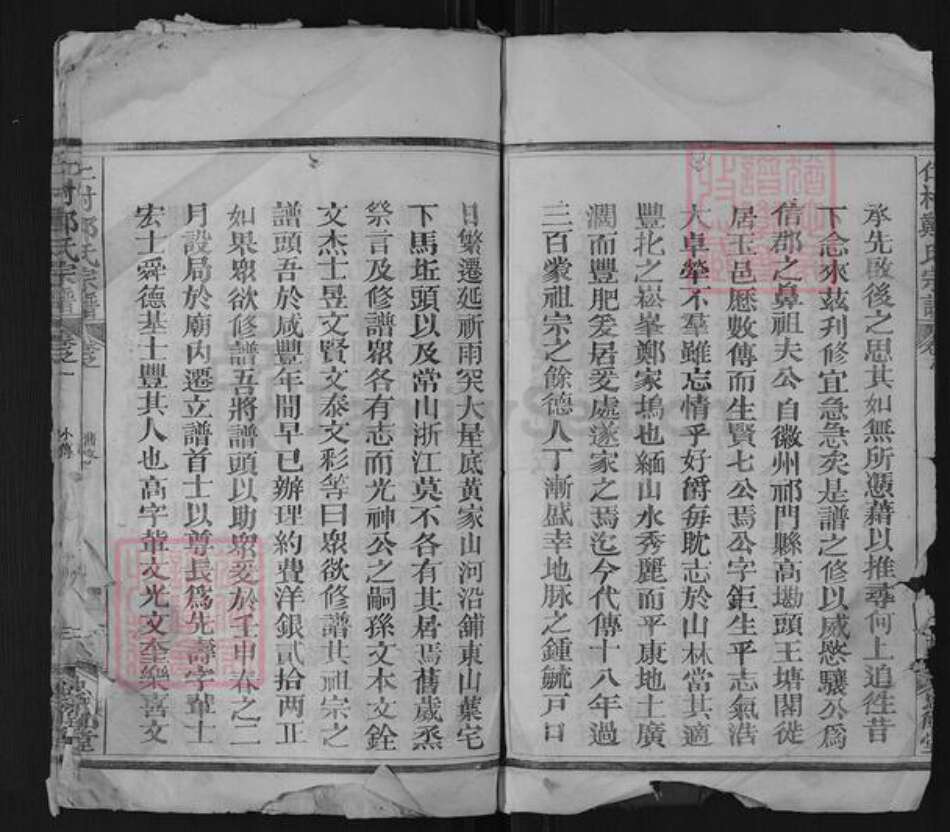 承先啟後之思其如無所憑藉以推尋何上追徃昔
下念來茲刋修宜急急矣是譜之修以威愍驤公爲
信郡之鼻祖夫公自徽州祁門縣高塘頭王塘閣徙
居玉邑歷數傳而生賢七公焉公字鉅生平志氣浩
大卓犖不羣雖忘情乎好爵每耽志於山林當其適
豐北之崧峯鄭家塢也緬山水秀麗而平康地土廣
濶而豐肥爰居爰處遂家之焉迄今代傳十八年過
三百蒙祖宗之餘德人丁漸盛幸地脉之鍾毓戸口
日繁遷延祈雨突大垕底黃家山河沿鋪東山葉宅
下馬坵頭以及常山浙江莫不各有其居焉舊歲烝
祭言及修譜眾各有志而光神公之嗣孫文本文銓
文杰士昱文賢文泰文彩等曰眾欲修譜其祖宗之
譜頭吾於咸豐年間早已辦理約費洋銀貳拾两正
如果眾欲修譜吾將譜頭以助眾爰於壬申春之二
月設局於廟內遷立譜首士以尊長爲先壽字軰士
宏士舜德基士豐其人也高字軰文光文奎樂喜文
仁村鄭氏宗譜
卷之一